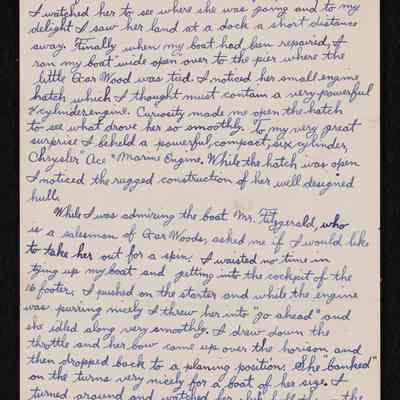 I watched her to see where she was going and to my
delight I saw her land at a dock a short distance
away. Finally when my boat had been repaired, I
ran my boat wide open over to the pier where the
little Gar Wood was tied. I noticed her small engine
hatch which I thought must contain a very powerful
4 cylinder engine. Curiosity made me open the hatch
to see what drove her so smoothly. To my very great
surprise I beheld a powerful, compact, six cylinder,
Chrysler "Ace" Marine Engine. While the hatch was open
I noticed the rugged construction of her well designed
hull.
While I was admiring the boat Mr. Fitzgerald, who
is a salesman of Gar Woods, asked me if I would like
to take her out for a spin. I waisted no time in
tying up my boat and getting into the cockpit of the
16 footer. I pushed on the starter and while the engine
was purring nicely I threw her into "go ahead" and
she idled along very smoothly. I drew down the
throttle and her bow came up over the horison and
then dropped back to a planing position. She "banked"
on the turns very nicely for a boat of her size. I
turned around and watched her